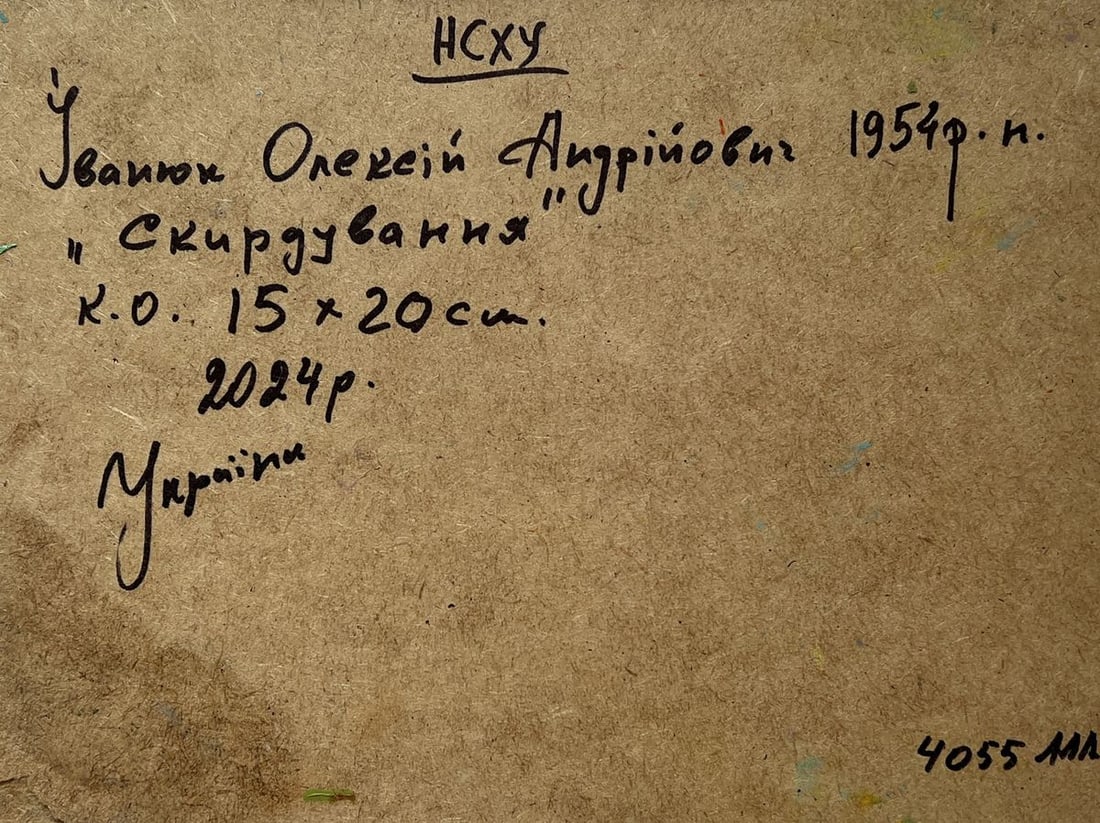 НСХУ
Іванюк Олексій Андрійович 1954р.н.
„Скирдування"
к.о. 15 x 20 см.
2024р.
Україна
4055